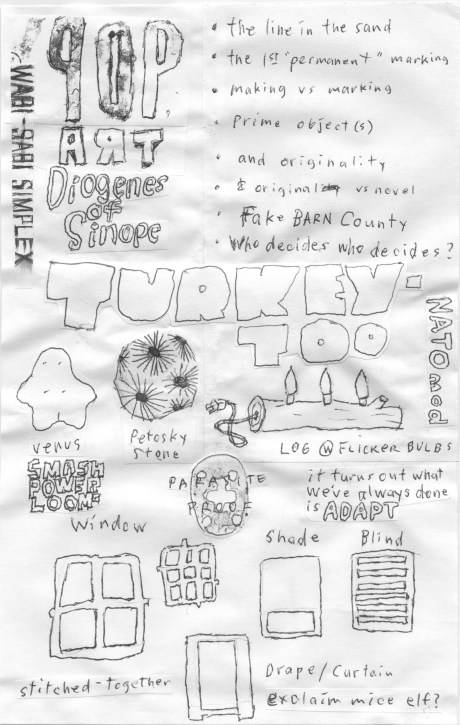 POP,
ART
WABI-SABI SIMPLEX
Diogenes
of
Sinope
• the line in the sand
• the 1st "permanent" marking
• making vs marking
• Prime object(s)
• and originality
• & original vs novel
• Fake BARN County
• Who decides who decides?
TURKEY-
TOO
NATO mod
venus
Petosky
Stone
LOG W FLICKER BULBS
SMASH
POWER
LOOMS
it turns out what
we've always done
is ADAPT
Window
Shade
Blind
stitched-together
Drape/Curtain
exclaim mice elf?